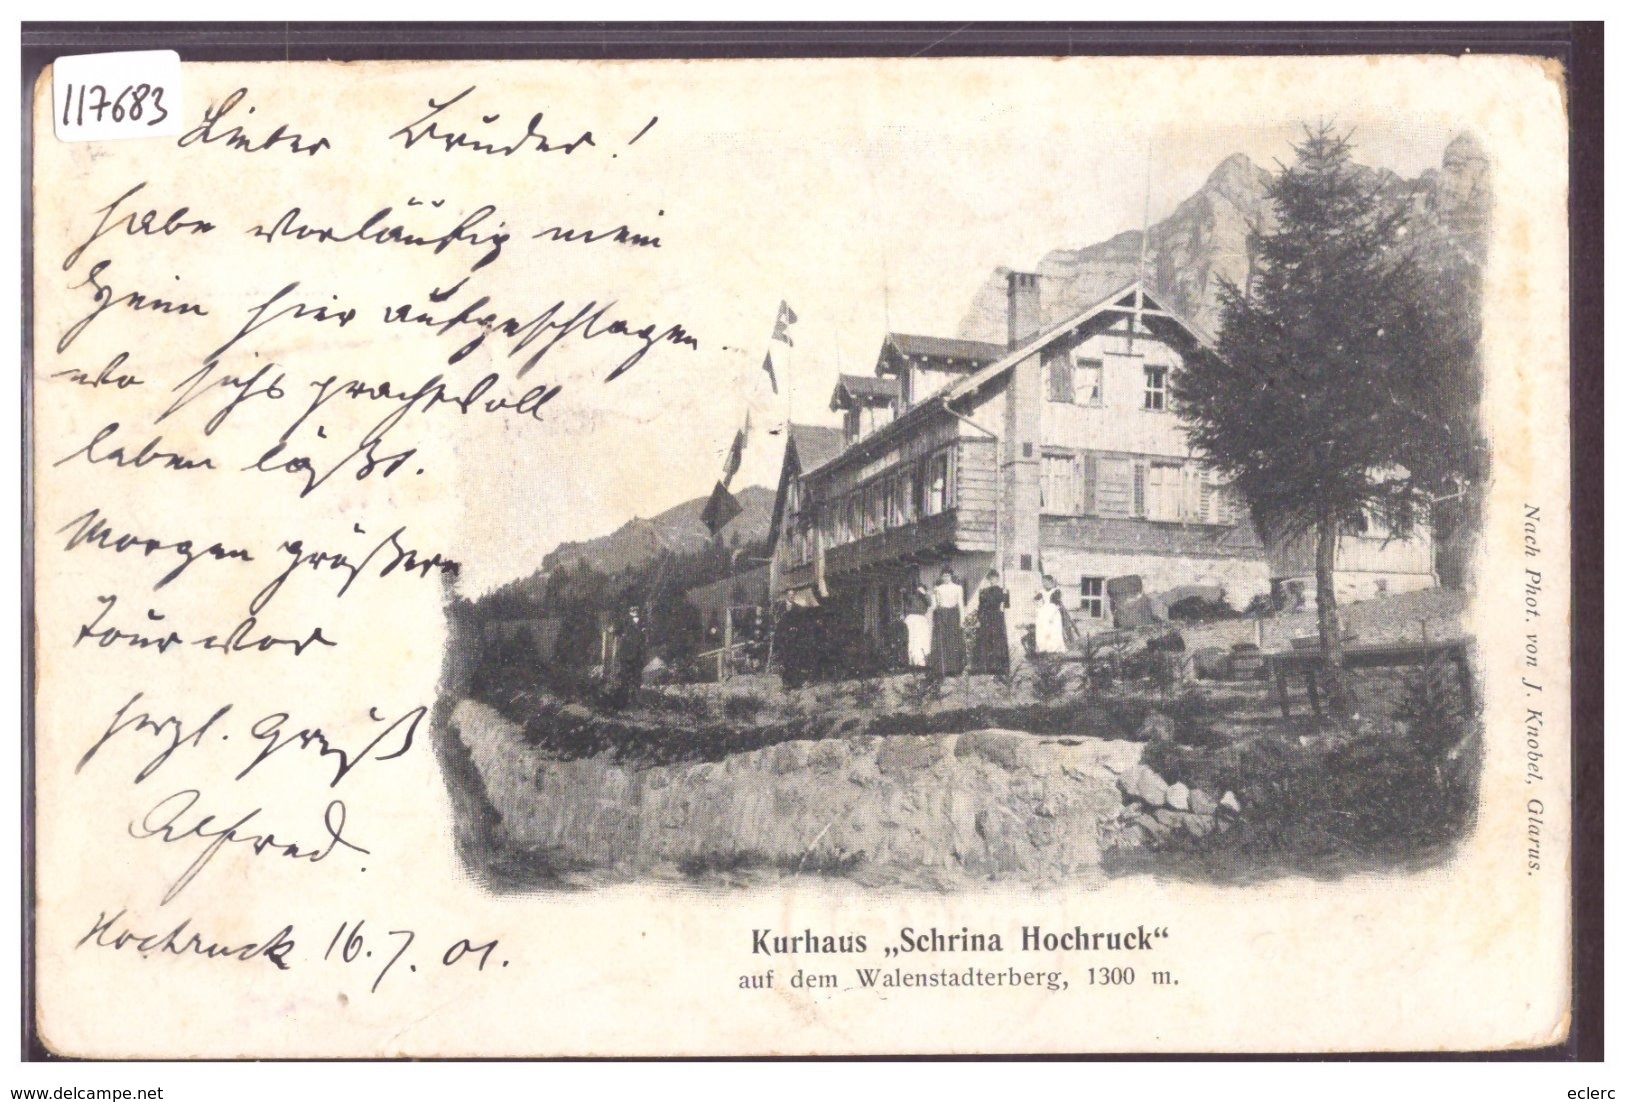 117683
Lieber Bruder!
habe vorläufig mein
Heim hier aufgeschlagen
wo sichs prachtvoll
leben läßt.
Morgen größere
Tour vor
herzl. Gruß
Alfred.
Hochruck 16.7.01.
Kurhaus „Schrina Hochruck“
auf dem Walenstadterberg, 1300 m.
Nach Phot. von J. Knobel, Glarus.
www.delcampe.net
eclerc